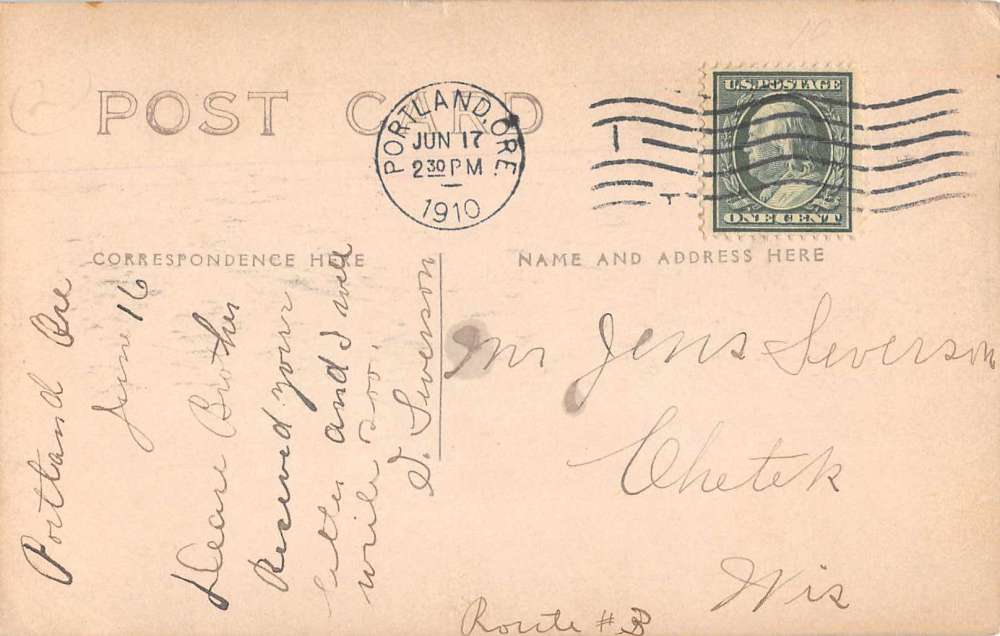 POST CARD
PORTLAND, ORE.
JUN 17
2 30 PM
1910
U.S. POSTAGE
ONE CENT
CORRESPONDENCE HERE
NAME AND ADDRESS HERE
Portland Ore
June 16
Dear Brother
Received your
letter and I will
write soo.
S. Severson
Mr Jens Severson
Chetek
Wis
Route #3